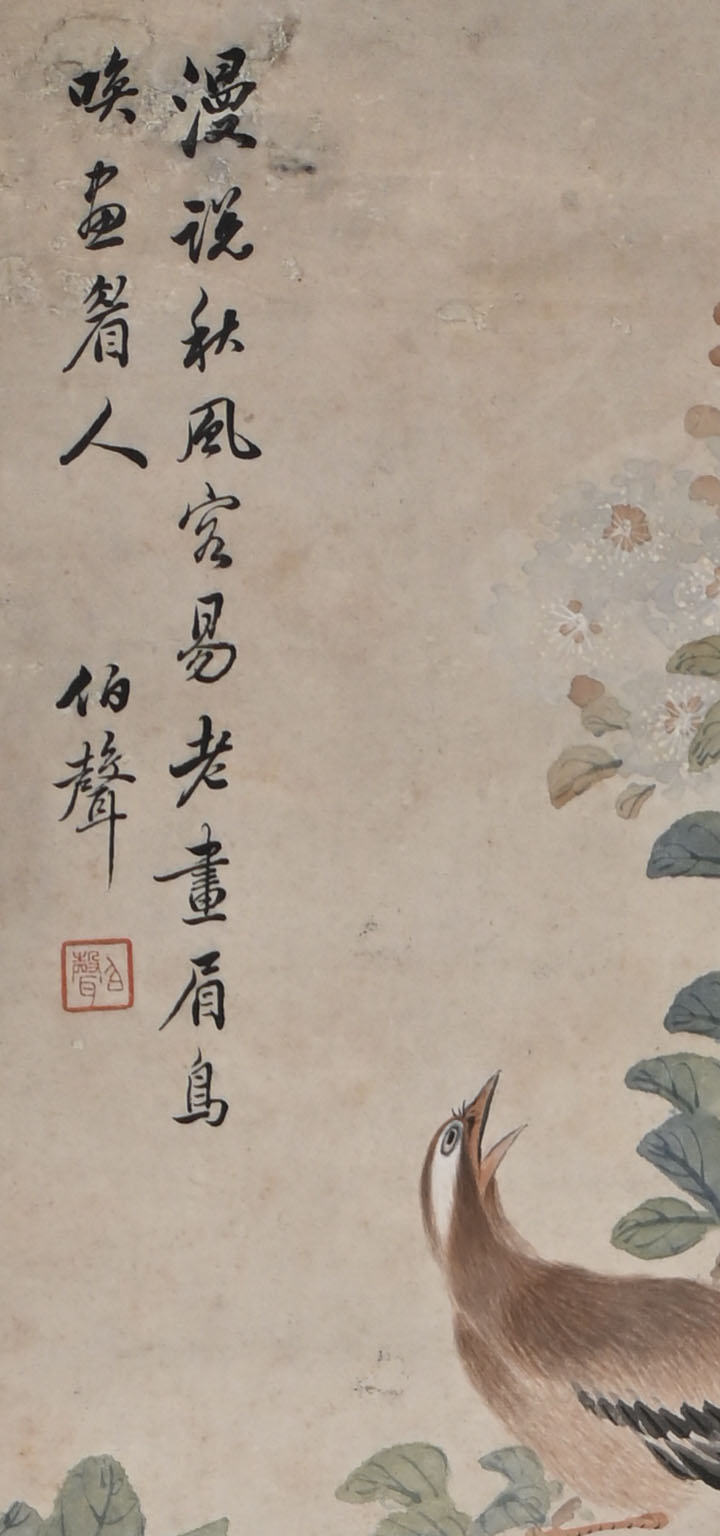 漫說秋風容易老畫眉鳥
喚畫睂人 伯聲